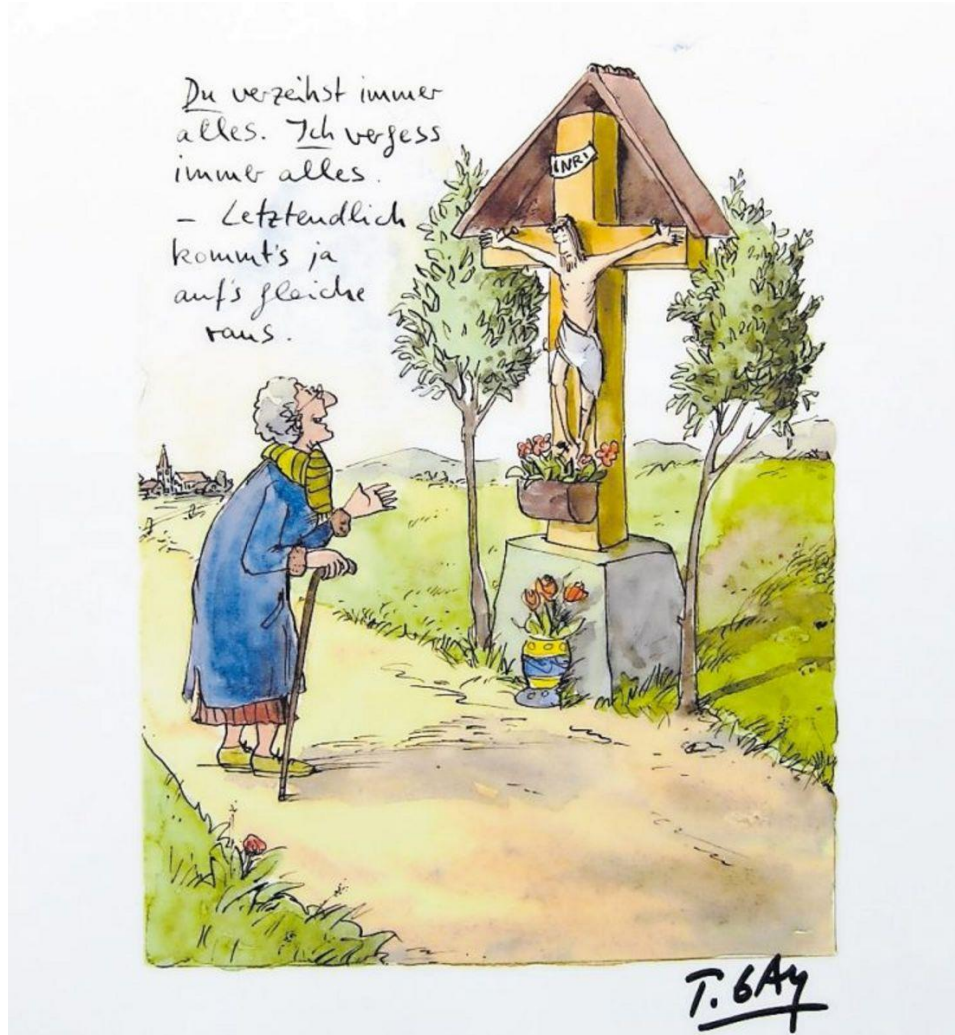 Du verzeihst immer
alles. Ich vergess
immer alles.
- Letztendlich
kommt's ja
auf's gleiche
raus.
INRI
T. GAY